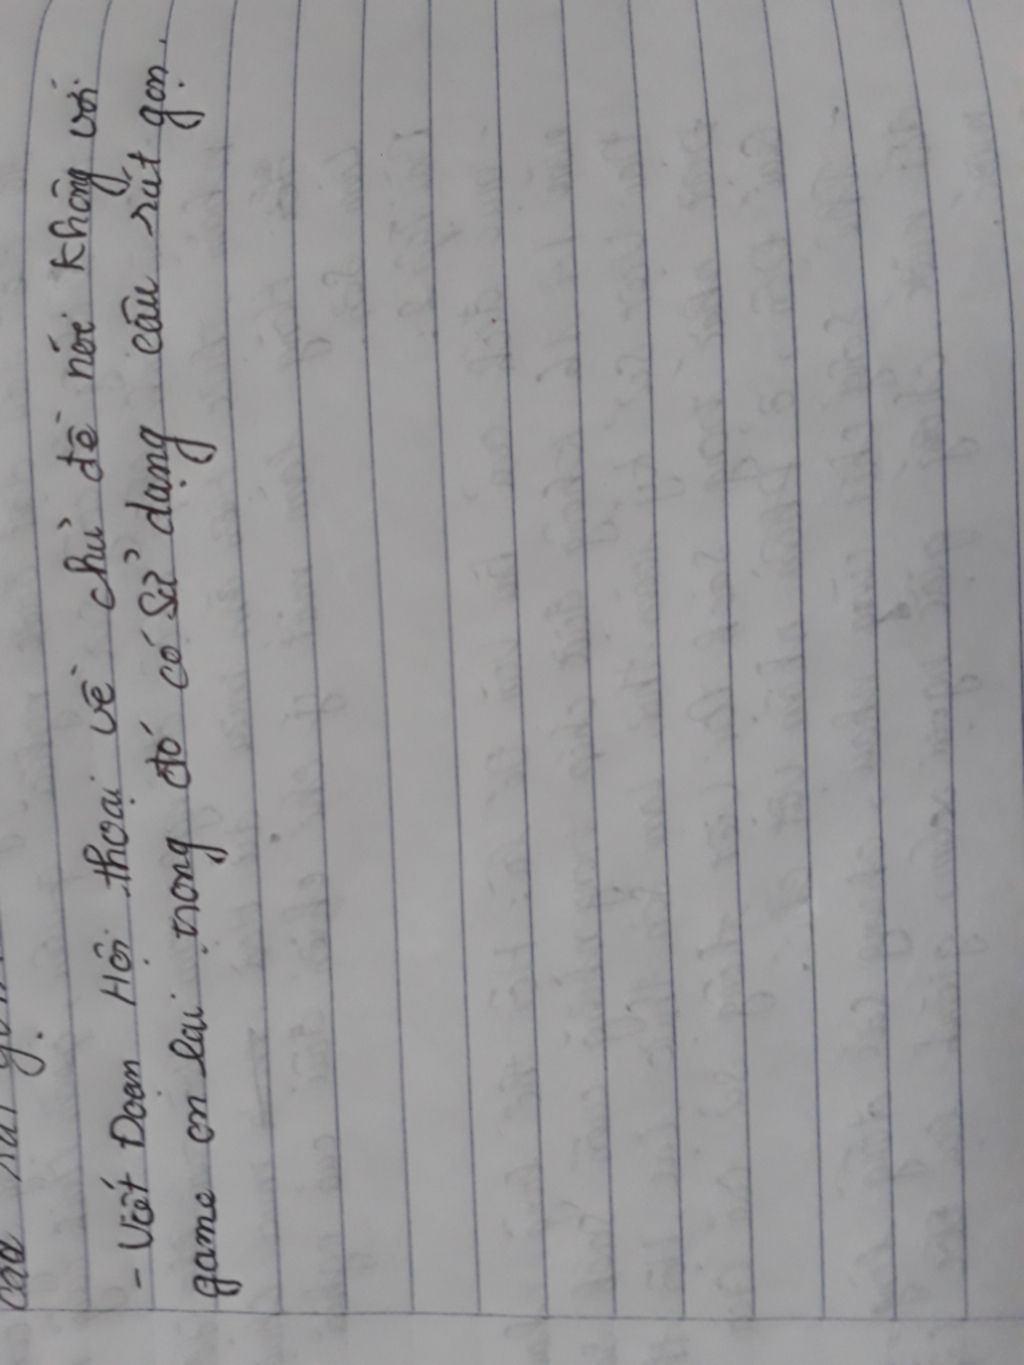 - Viết Đoạn Hội thoại về chủ đề nói không với
game on lai trong đó có sử dạng câu rút gọn.